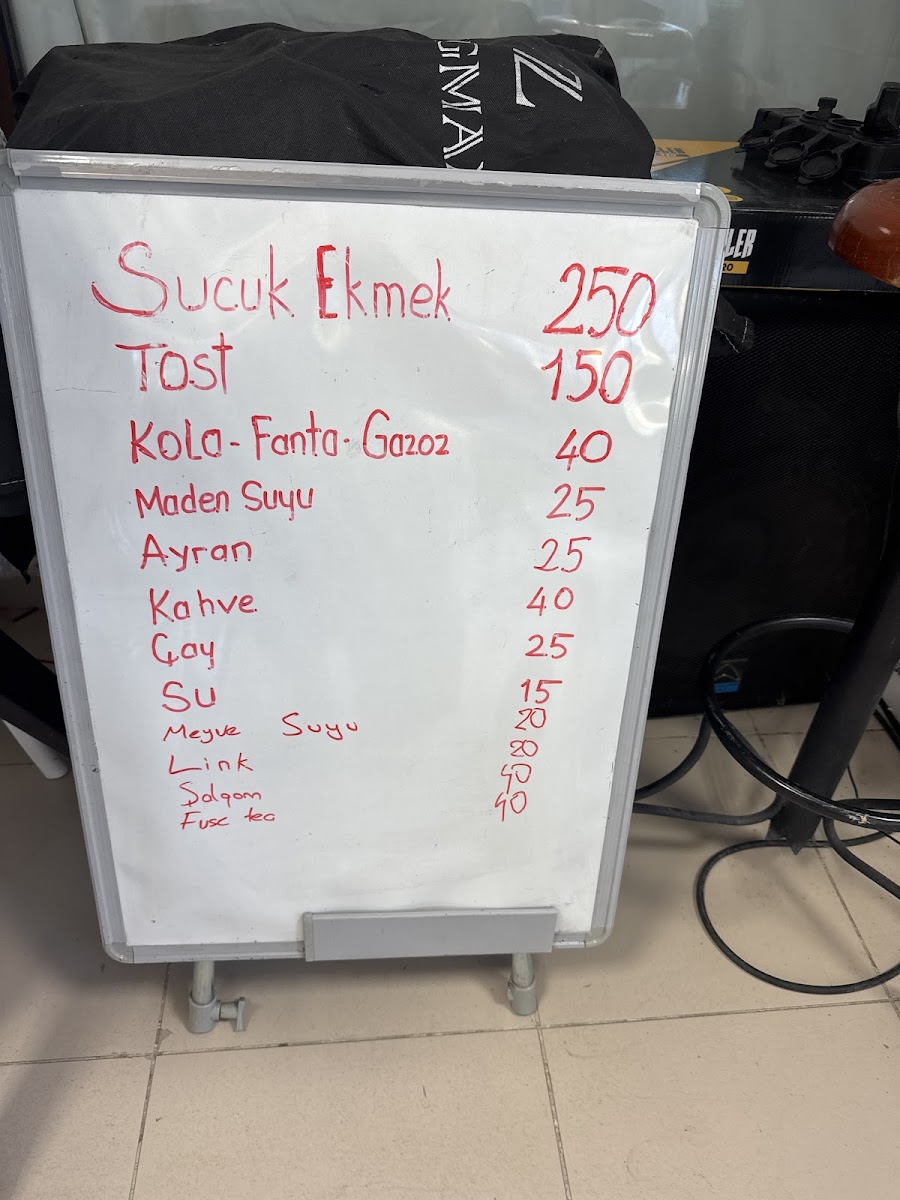 Z
GMA
LER
20
Sucuk Ekmek 250
Tost 150
Kola - Fanta - Gazoz 40
Maden Suyu 25
Ayran 25
Kahve 40
Çay 25
Su 15
Meyve Suyu 20
Link 20
Şalgam 40
Fuse tea 40